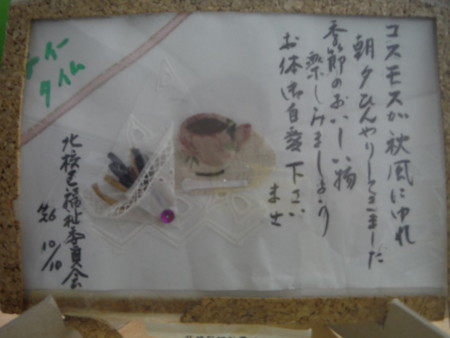 コスモスが秋風にゆれ
朝夕ひんやりしてきました
季節のおいしい物
楽しみましょう
お体御自愛下さい
ませ
ティー
タイム
北校区福祉委員会
10/10